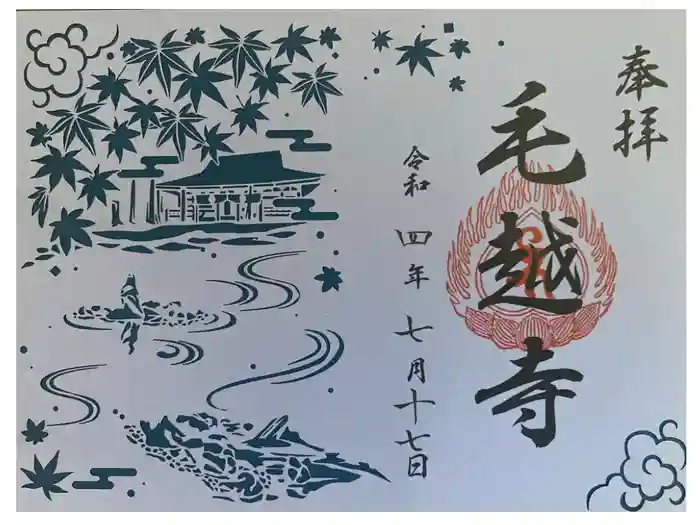 奉拝
毛越寺
令和四年七月十七日